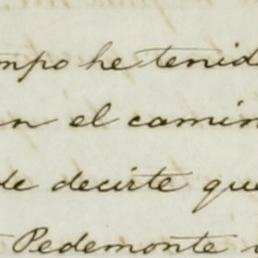 mpo he tenid
en el camin
de decirte que
Pedemonte